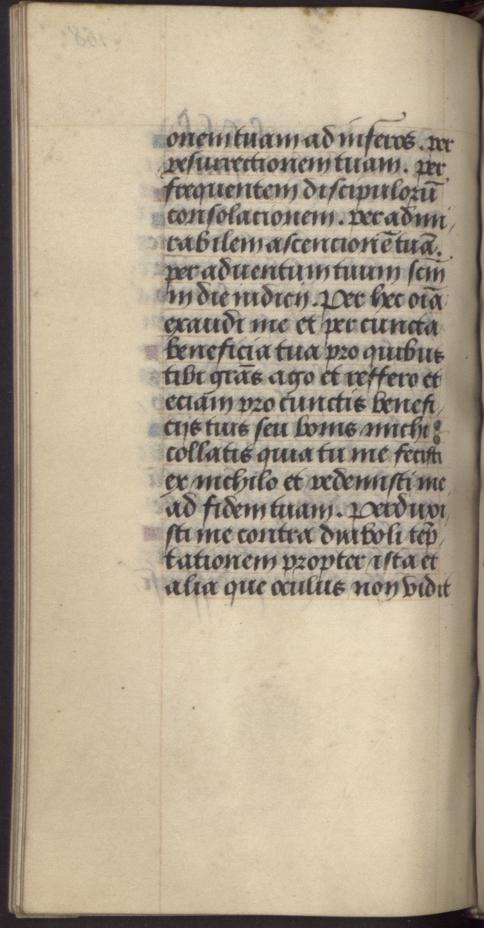 onem tuam ad inferos. per
resurrectionem tuam. per
frequentem discipuloru̅
consolacionem. per admi
rabilem ascencione̅ tua̅.
per adventum tuum scm̅
in die iudicij. Per hec oi̅a
exaudi me et per cuncta
beneficia tua pro quibus
tibi gra̅s ago et reffero et
eciam pro cunctis benefi
cijs tuis seu bonis michi
collatis quia tu me fecisti
ex nichilo et redemisti me
ad fidem tuam. Perduxi
sti me contra diaboli te̅p
tationem propter ista et
alia que oculus non vidit